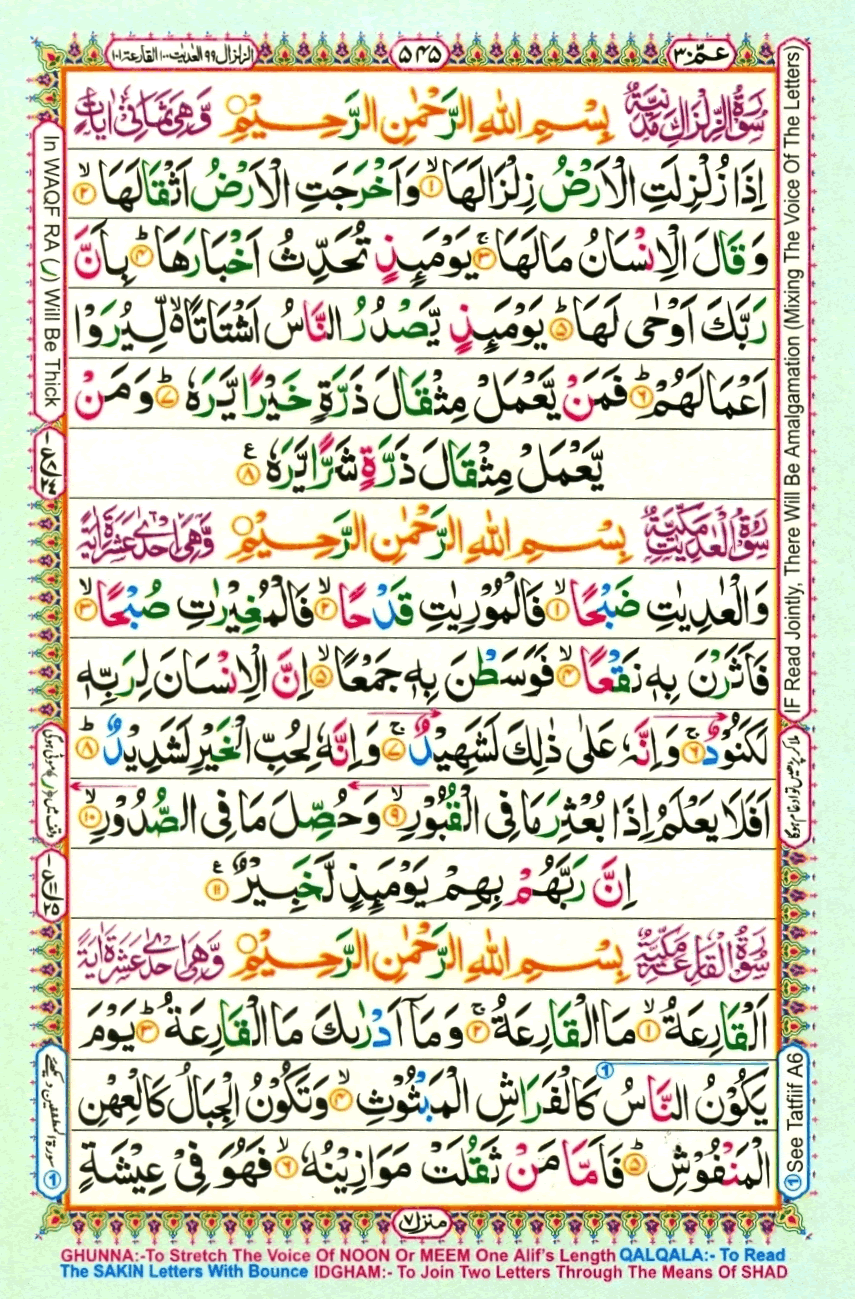 عـمّ ٣٠
٥٤٥
الزلزال ٩٩ العٰديٰت ١٠٠ القارعة ١٠١
سُوْرَةُ الزِّلْزَالِ مَدَنِيَّةٌ بِسْمِ اللهِ الرَّحْمٰنِ الرَّحِيْمِ وَّهِيَ ثَمَانِيْ اٰيَاتٍ
اِذَا زُلْزِلَتِ الْاَرْضُ زِلْزَالَهَا ۙ۝۱ وَاَخْرَجَتِ الْاَرْضُ اَثْقَالَهَا ۙ۝۲
وَقَالَ الْاِنْسَانُ مَالَهَا ۚ۝۳ يَوْمَئِذٍ تُحَدِّثُ اَخْبَارَهَا ؕ۝۴ بِاَنَّ
رَبَّكَ اَوْحٰى لَهَا ؕ۝۵ يَوْمَئِذٍ يَّصْدُرُ النَّاسُ اَشْتَاتًا ۙ۬ لِّيُرَوْا
اَعْمَالَهُمْ ؕ۝۶ فَمَنْ يَّعْمَلْ مِثْقَالَ ذَرَّةٍ خَيْرًا يَّرَهٗ ؕ۝۷ وَمَنْ
يَّعْمَلْ مِثْقَالَ ذَرَّةٍ شَرًّا يَّرَهٗ ۝۸ ع
سُوْرَةُ الْعٰدِيٰتِ مَكِّيَّةٌ بِسْمِ اللهِ الرَّحْمٰنِ الرَّحِيْمِ وَّهِيَ اِحْدٰى عَشْرَةَ اٰيَةً
وَالْعٰدِيٰتِ ضَبْحًا ۙ۝۱ فَالْمُوْرِيٰتِ قَدْحًا ۙ۝۲ فَالْمُغِيْرٰتِ صُبْحًا ۙ۝۳
فَاَثَرْنَ بِهٖ نَقْعًا ۙ۝۴ فَوَسَطْنَ بِهٖ جَمْعًا ۙ۝۵ اِنَّ الْاِنْسَانَ لِرَبِّهٖ
لَكَنُوْدٌ ۚ۝۶ وَاِنَّهٗ عَلٰى ذٰلِكَ لَشَهِيْدٌ ۚ۝۷ وَاِنَّهٗ لِحُبِّ الْخَيْرِ لَشَدِيْدٌ ؕ۝۸
اَفَلَا يَعْلَمُ اِذَا بُعْثِرَ مَا فِى الْقُبُوْرِ ۙ۝۹ وَحُصِّلَ مَا فِى الصُّدُوْرِ ۙ۝۱۰
اِنَّ رَبَّهُمْ بِهِمْ يَوْمَئِذٍ لَّخَبِيْرٌ ۝۱۱ ع
سُوْرَةُ الْقَارِعَةِ مَكِّيَّةٌ بِسْمِ اللهِ الرَّحْمٰنِ الرَّحِيْمِ وَّهِيَ اِحْدٰى عَشْرَةَ اٰيَةً
اَلْقَارِعَةُ ۙ۝۱ مَا الْقَارِعَةُ ۚ۝۲ وَمَاۤ اَدْرٰىكَ مَا الْقَارِعَةُ ؕ۝۳ يَوْمَ
يَكُوْنُ النَّاسُ كَالْفَرَاشِ الْمَبْثُوْثِ ۙ۝۴ وَتَكُوْنُ الْجِبَالُ كَالْعِهْنِ
الْمَنْفُوْشِ ؕ۝۵ فَاَمَّا مَنْ ثَقُلَتْ مَوَازِيْنُهٗ ۙ۝۶ فَهُوَ فِىْ عِيْشَةٍ
منزل ٧
In WAQF RA (ر) Will Be Thick
IF Read Jointly, There Will Be Amalgamation (Mixing The Voice Of The Letters)
① See Tatfiif A6
GHUNNA:-To Stretch The Voice Of NOON Or MEEM One Alif's Length QALQALA:- To Read
The SAKIN Letters With Bounce IDGHAM:- To Join Two Letters Through The Means Of SHAD